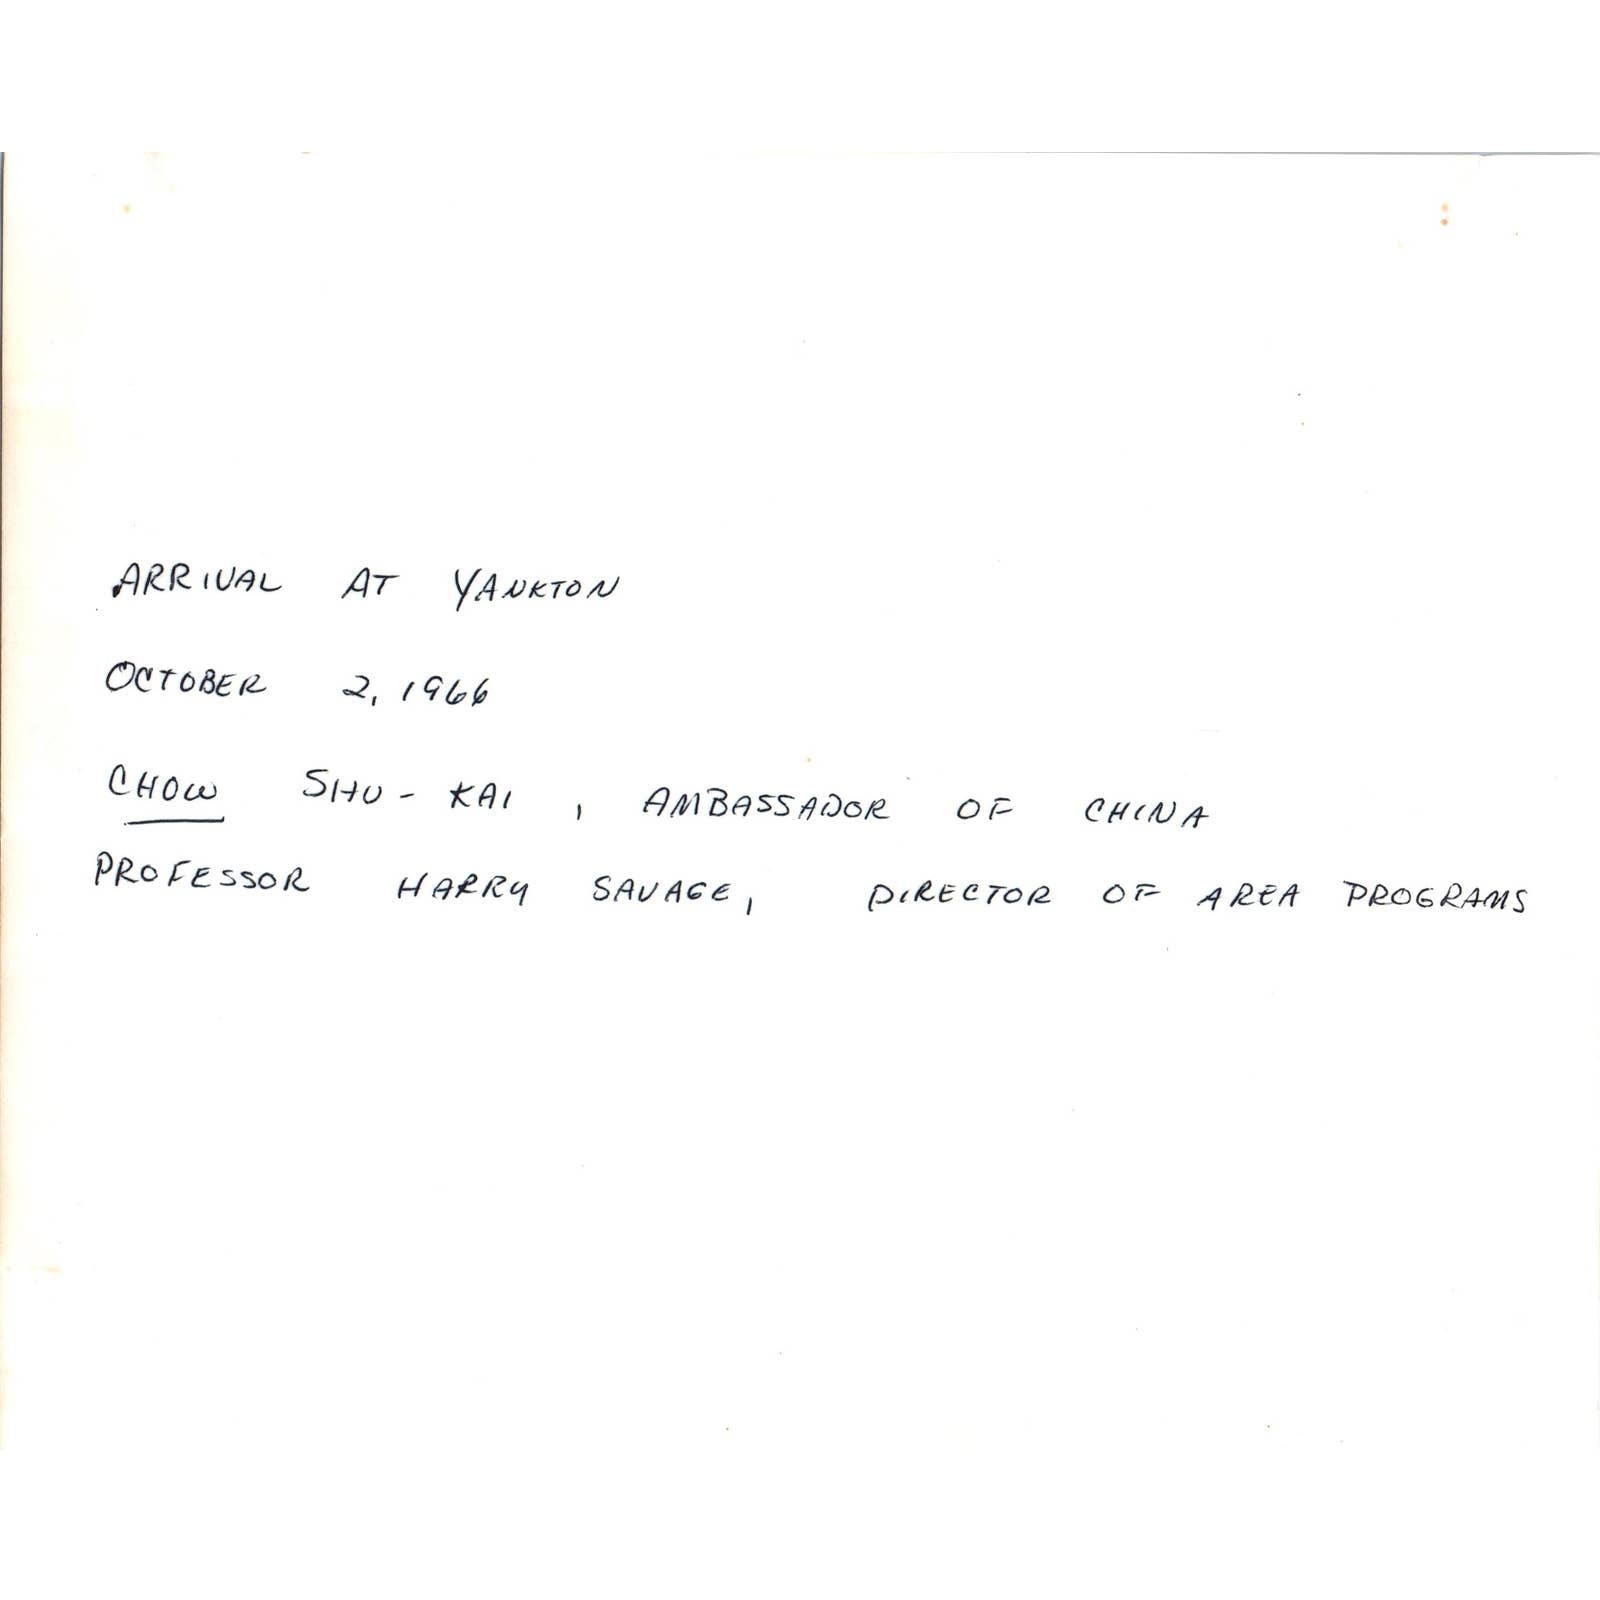 ARRIVAL AT YANKTON
OCTOBER 2, 1966
CHOW SHU-KAI, AMBASSADOR OF CHINA
PROFESSOR HARRY SAVAGE, DIRECTOR OF AREA PROGRAMS